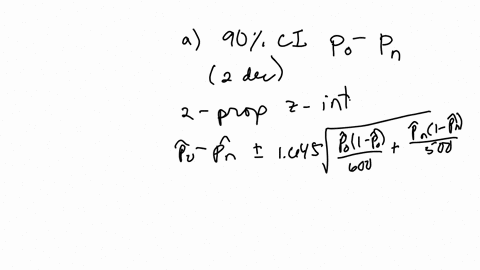 a) 90% CI p₀ - pₙ
(2 dec)
2 - prop z - int
p̂₀ - p̂ₙ ± 1.645 √( p̂₀(1-p̂₀)/600 + p̂ₙ(1-p̂ₙ)/500 )